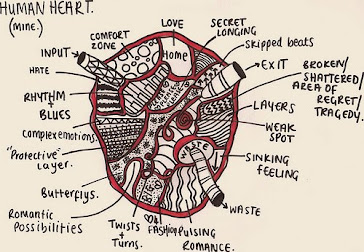 HUMAN HEART.
(MINE.)
LOVE
SECRET
LONGING
COMFORT
ZONE
skipped beats
Home
INPUT
EXIT
HATE
BROKEN/
SHATTERED/
AREA OF
REGRET/
TRAGEDY.
RHYTHM
+
BLUES
LAYERS
Complex emotions.
WEAK
SPOT
"Protective"
Layer.
WASTE
SINKING
FEELING
Butterflys.
WASTE
Romantic
Possibilities
TWISTS
+
Turns.
FASHION
PULSING
ROMANCE.